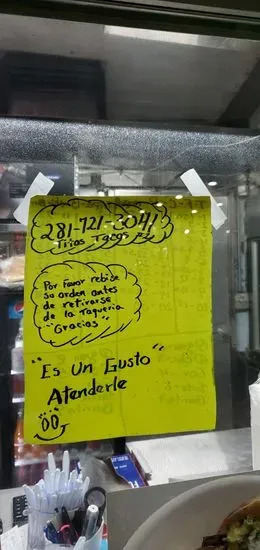 281-721-3041
Trios Tacos #2
Por favor rebice
su orden antes
de retirarse
de la Taqueria
"Gracias"
"Es Un Gusto"
Atenderle